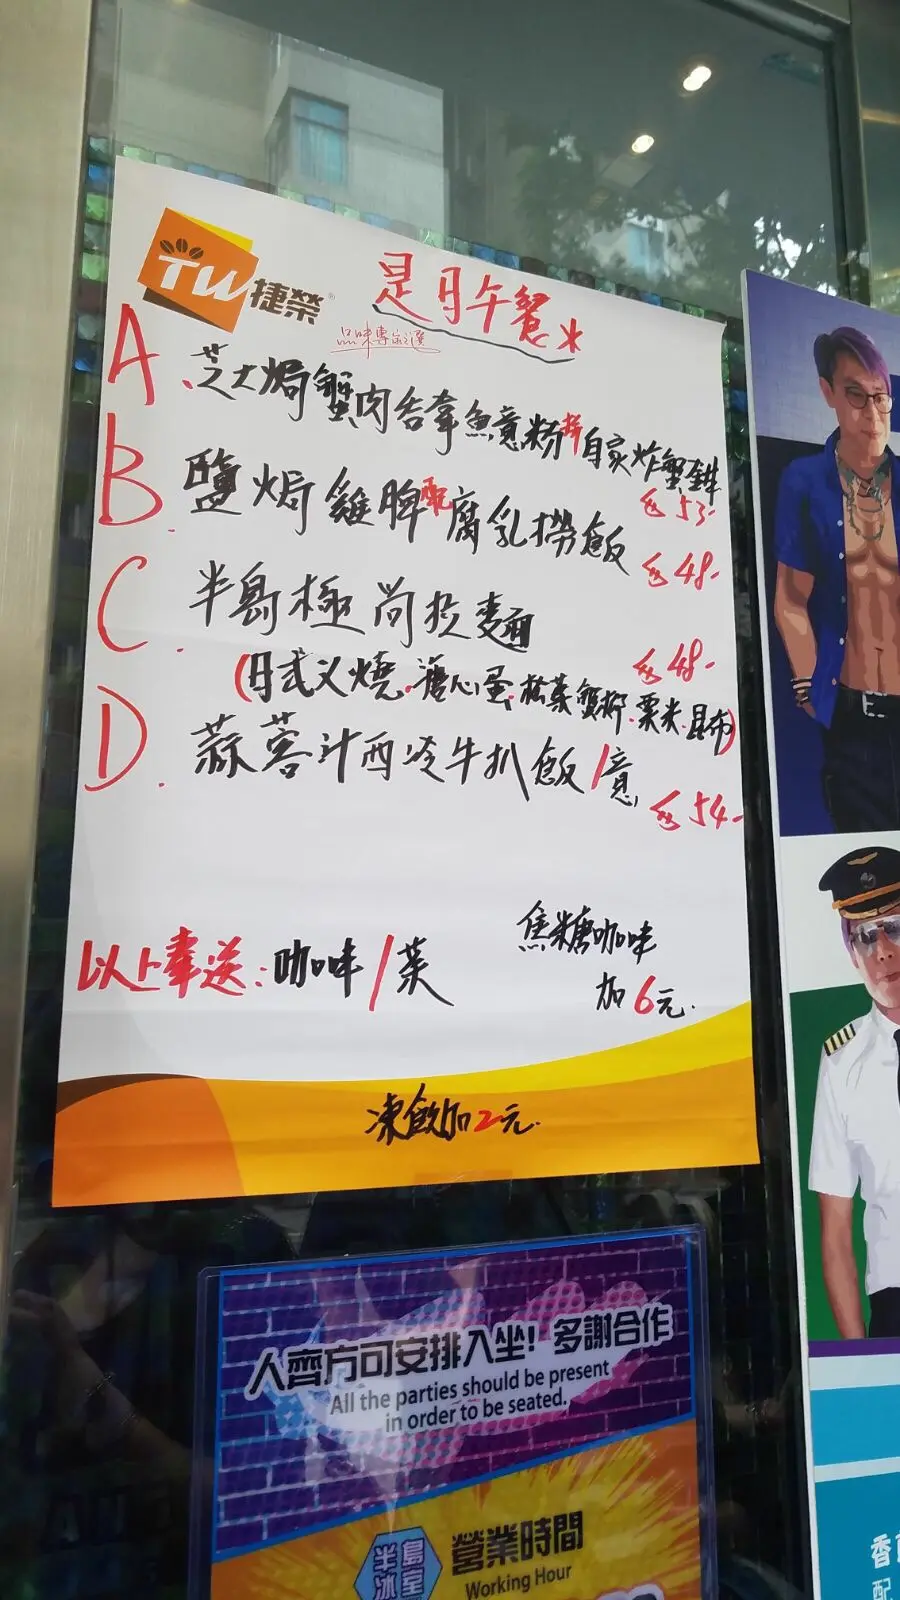 TW捷榮®
是日午餐
品味專家之選
A.芝士焗蟹肉吞拿魚意粉拼自家炸蟹鉗
$53-
B.鹽焗雞脾配腐乳撈飯
$48-
C.半島極尚拉麵
$48-
(日式叉燒.溏心蛋.菘菜蟹柳.粟米.昆布)
D.蒜蓉汁西冷牛扒飯/意
$54-
以上奉送:咖啡/茶
焦糖咖啡
加6元.
凍飲加2元.
人齊方可安排入坐!多謝合作
All the parties should be present
in order to be seated.
半島
冰室
營業時間
Working Hour
香
配